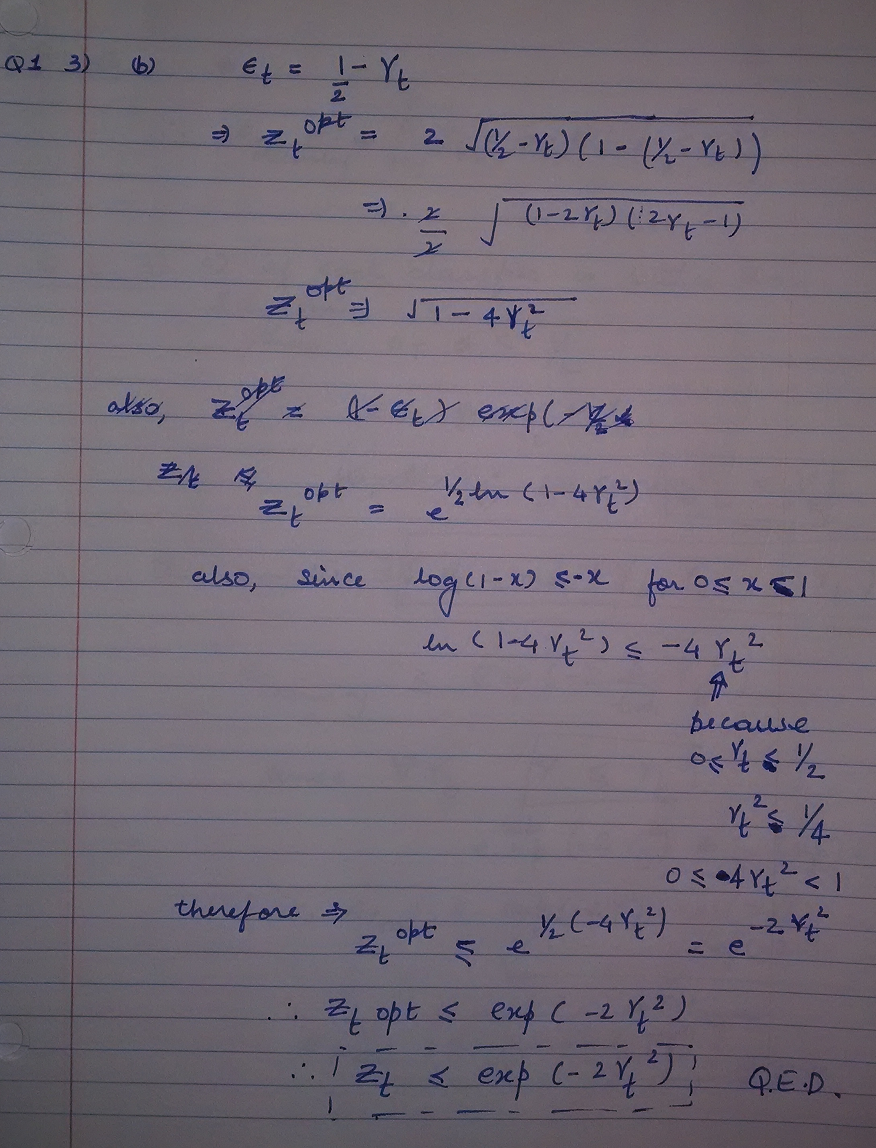 Q1 3) (b) ϵt = 1/2 - γt
⇒ Zt^opt = 2 √(1/2 - γt)(1 - (1/2 - γt))
⇒ . 2/2 √(1-2γt)(2γt-1)
Zt^opt ⇒ √1 - 4γt²
also, Zt^opt = (1 - ϵt) exp(-1/2
Zt ≤
Zt^opt = e^1/2 ln (1-4γt²)
also, since log(1-x) ≤ -x for 0 ≤ x ≤ 1
ln (1-4γt²) ≤ -4γt²
⇑
because
0 ≤ γt ≤ 1/2
γt² ≤ 1/4
0 ≤ 4γt² < 1
therefore ⇒
Zt^opt ≤ e^1/2(-4γt²) = e^-2γt²
∴ Zt opt ≤ exp ( -2γt²)
∴ Zt ≤ exp (-2γt²) Q.E.D.